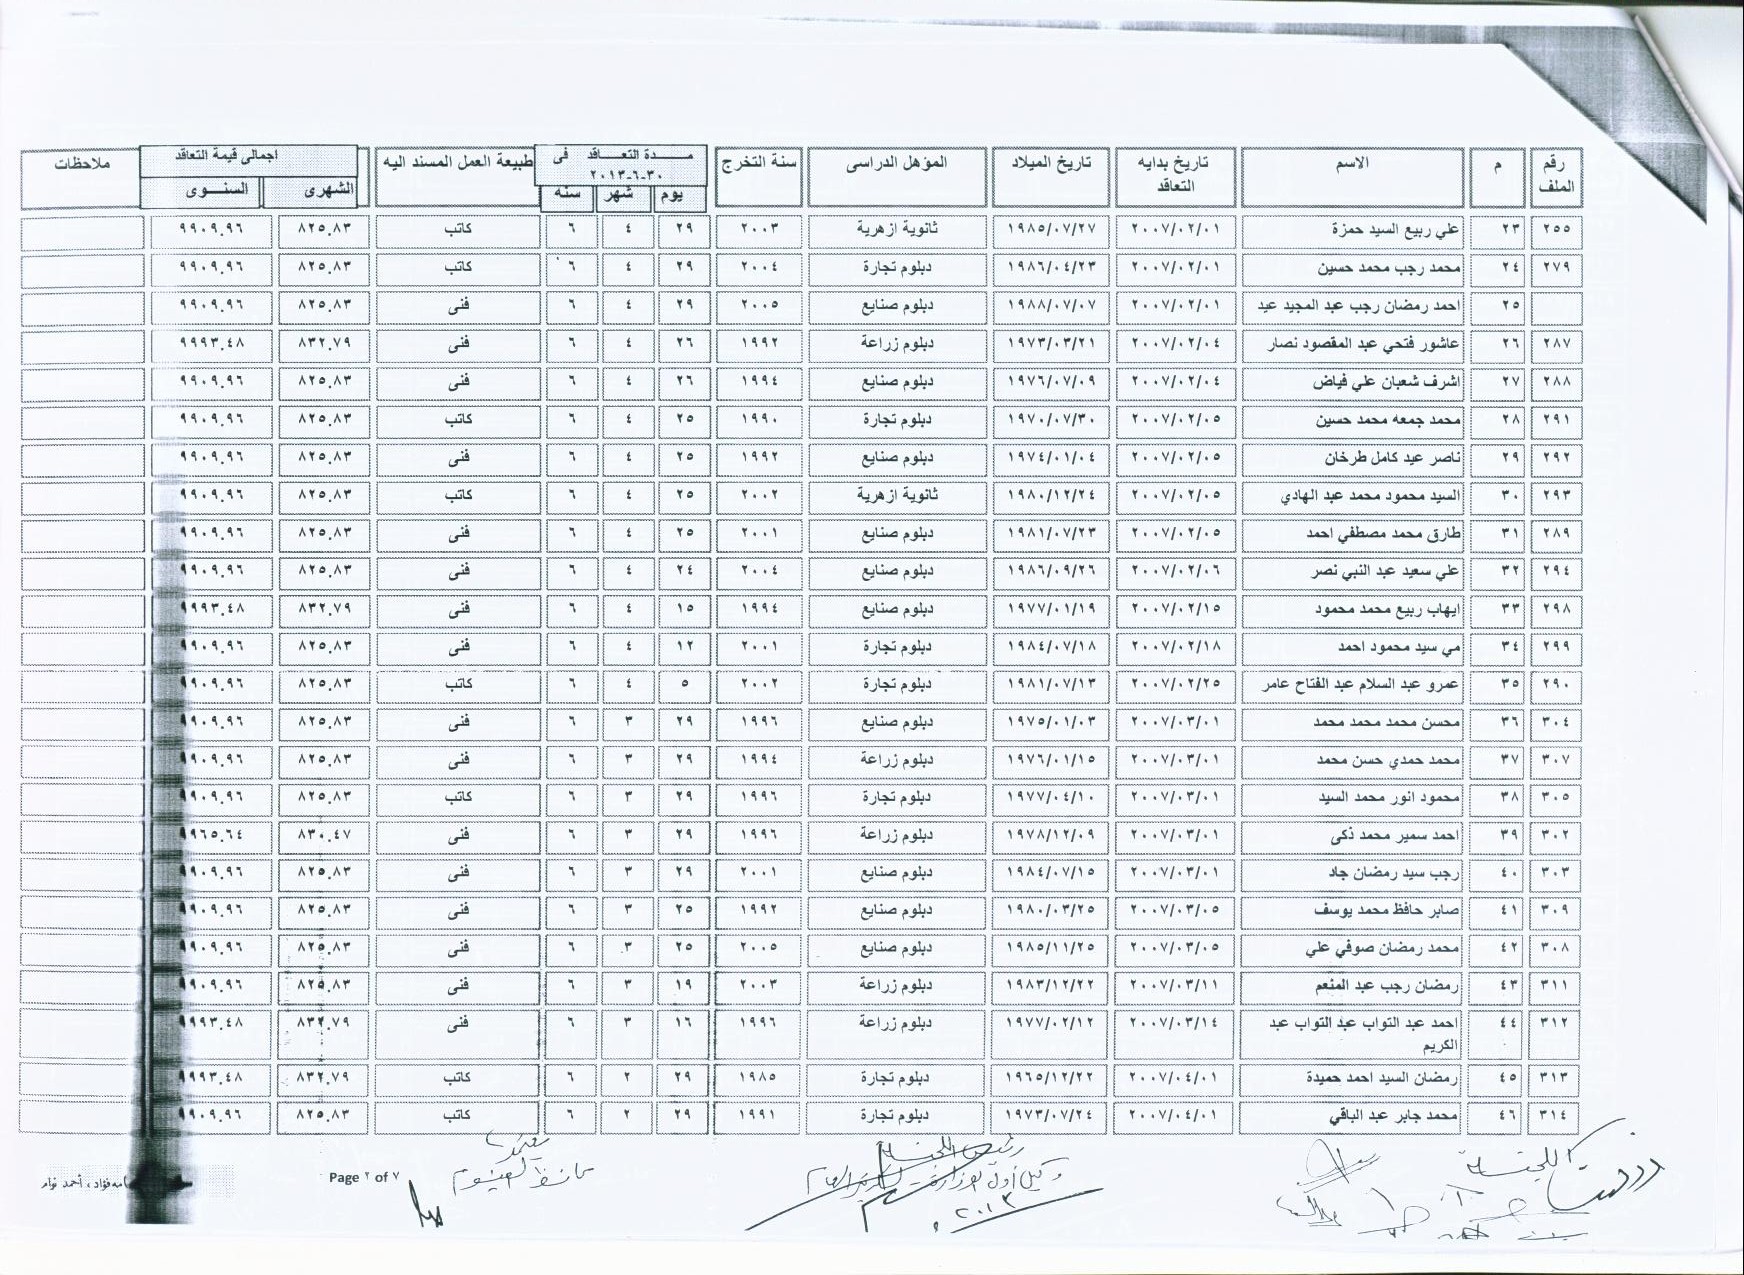 رقم الملف | م | الاسم | تاريخ بدايه التعاقد | تاريخ الميلاد | المؤهل الدراسى | سنة التخرج | مــدة التعــاقد فى ٣٠-٦-٢٠١٣ | يوم | شهر | سنه | طبيعة العمل المسند اليه | اجمالى قيمة التعاقد | الشهرى | السنــوى | ملاحظات
٢٥٥ ٢٣ علي ربيع السيد حمزة ٢٠٠٧/٠٢/٠١ ١٩٨٥/٠٧/٢٧ ثانوية ازهرية ٢٠٠٣ ٢٩ ٤ ٦ كاتب ٨٢٥.٨٣ ٩٩٠٩.٩٦
٢٧٩ ٢٤ محمد رجب محمد حسين ٢٠٠٧/٠٢/٠١ ١٩٨٦/٠٤/٢٣ دبلوم تجارة ٢٠٠٤ ٢٩ ٤ ٦ كاتب ٨٢٥.٨٣ ٩٩٠٩.٩٦
٢٥ احمد رمضان رجب عبد المجيد عيد ٢٠٠٧/٠٢/٠١ ١٩٨٨/٠٧/٠٧ دبلوم صنايع ٢٠٠٥ ٢٩ ٤ ٦ فنى ٨٢٥.٨٣ ٩٩٠٩.٩٦
٢٨٧ ٢٦ عاشور فتحي عبد المقصود نصار ٢٠٠٧/٠٢/٠٤ ١٩٧٣/٠٣/٢١ دبلوم زراعة ١٩٩٢ ٢٦ ٤ ٦ فنى ٨٣٢.٧٩ ٩٩٩٣.٤٨
٢٨٨ ٢٧ اشرف شعبان علي فياض ٢٠٠٧/٠٢/٠٤ ١٩٧٦/٠٧/٠٩ دبلوم صنايع ١٩٩٤ ٢٦ ٤ ٦ فنى ٨٢٥.٨٣ ٩٩٠٩.٩٦
٢٩١ ٢٨ محمد جمعه محمد حسين ٢٠٠٧/٠٢/٠٥ ١٩٧٠/٠٧/٣٠ دبلوم تجارة ١٩٩٠ ٢٥ ٤ ٦ كاتب ٨٢٥.٨٣ ٩٩٠٩.٩٦
٢٩٢ ٢٩ ناصر عيد كامل طرخان ٢٠٠٧/٠٢/٠٥ ١٩٧٤/٠١/٠٤ دبلوم صنايع ١٩٩٢ ٢٥ ٤ ٦ فنى ٨٢٥.٨٣ ٩٩٠٩.٩٦
٢٩٣ ٣٠ السيد محمود محمد عبد الهادي ٢٠٠٧/٠٢/٠٥ ١٩٨٠/١٢/٢٤ ثانوية ازهرية ٢٠٠٢ ٢٥ ٤ ٦ كاتب ٨٢٥.٨٣ ٩٩٠٩.٩٦
٢٨٩ ٣١ طارق محمد مصطفي احمد ٢٠٠٧/٠٢/٠٥ ١٩٨١/٠٧/٢٣ دبلوم صنايع ٢٠٠١ ٢٥ ٤ ٦ فنى ٨٢٥.٨٣ ٩٩٠٩.٩٦
٢٩٤ ٣٢ علي سعيد عبد النبي نصر ٢٠٠٧/٠٢/٠٦ ١٩٨٦/٠٩/٢٦ دبلوم صنايع ٢٠٠٤ ٢٤ ٤ ٦ فنى ٨٢٥.٨٣ ٩٩٠٩.٩٦
٢٩٨ ٣٣ ايهاب ربيع محمد محمود ٢٠٠٧/٠٢/١٥ ١٩٧٧/٠١/١٩ دبلوم صنايع ١٩٩٤ ١٥ ٤ ٦ فنى ٨٣٢.٧٩ ٩٩٩٣.٤٨
٢٩٩ ٣٤ مي سيد محمود احمد ٢٠٠٧/٠٢/١٨ ١٩٨٤/٠٧/١٨ دبلوم تجارة ٢٠٠١ ١٢ ٤ ٦ فنى ٨٢٥.٨٣ ٩٩٠٩.٩٦
٢٩٠ ٣٥ عمرو عبد السلام عبد الفتاح عامر ٢٠٠٧/٠٢/٢٥ ١٩٨١/٠٧/١٣ دبلوم تجارة ٢٠٠٢ ٥ ٤ ٦ كاتب ٨٢٥.٨٣ ٩٩٠٩.٩٦
٣٠٤ ٣٦ محسن محمد محمد محمد ٢٠٠٧/٠٣/٠١ ١٩٧٥/٠١/٠٣ دبلوم صنايع ١٩٩٦ ٢٩ ٣ ٦ فنى ٨٢٥.٨٣ ٩٩٠٩.٩٦
٣٠٧ ٣٧ محمد حمدي حسن محمد ٢٠٠٧/٠٣/٠١ ١٩٧٦/٠١/١٥ دبلوم زراعة ١٩٩٤ ٢٩ ٣ ٦ فنى ٨٢٥.٨٣ ٩٩٠٩.٩٦
٣٠٥ ٣٨ محمود انور محمد السيد ٢٠٠٧/٠٣/٠١ ١٩٧٧/٠٤/١٠ دبلوم تجارة ١٩٩٦ ٢٩ ٣ ٦ كاتب ٨٢٥.٨٣ ٩٩٠٩.٩٦
٣٠٢ ٣٩ احمد سمير محمد ذكى ٢٠٠٧/٠٣/٠١ ١٩٧٨/١٢/٠٩ دبلوم زراعة ١٩٩٦ ٢٩ ٣ ٦ فنى ٨٣٠.٤٧ ٩٩٦٥.٦٤
٣٠٣ ٤٠ رجب سيد رمضان جاد ٢٠٠٧/٠٣/٠١ ١٩٨٤/٠٧/١٥ دبلوم صنايع ٢٠٠١ ٢٩ ٣ ٦ فنى ٨٢٥.٨٣ ٩٩٠٩.٩٦
٣٠٩ ٤١ صابر حافظ محمد يوسف ٢٠٠٧/٠٣/٠٥ ١٩٨٠/٠٣/٢٥ دبلوم صنايع ١٩٩٢ ٢٥ ٣ ٦ فنى ٨٢٥.٨٣ ٩٩٠٩.٩٦
٣٠٨ ٤٢ محمد رمضان صوفي علي ٢٠٠٧/٠٣/٠٥ ١٩٨٥/١١/٢٥ دبلوم صنايع ٢٠٠٥ ٢٥ ٣ ٦ فنى ٨٢٥.٨٣ ٩٩٠٩.٩٦
٣١١ ٤٣ رمضان رجب عبد المنعم ٢٠٠٧/٠٣/١١ ١٩٨٣/١٢/٢٢ دبلوم زراعة ٢٠٠٣ ١٩ ٣ ٦ فنى ٨٢٥.٨٣ ٩٩٠٩.٩٦
٣١٢ ٤٤ احمد عبد التواب عبد التواب عبد الكريم ٢٠٠٧/٠٣/١٤ ١٩٧٧/٠٢/١٢ دبلوم زراعة ١٩٩٦ ١٦ ٣ ٦ فنى ٨٣٢.٧٩ ٩٩٩٣.٤٨
٣١٣ ٤٥ رمضان السيد احمد حميدة ٢٠٠٧/٠٤/٠١ ١٩٦٥/١٢/٢٢ دبلوم تجارة ١٩٨٥ ٢٩ ٢ ٦ كاتب ٨٣٢.٧٩ ٩٩٩٣.٤٨
٣١٤ ٤٦ محمد جابر عبد الباقي ٢٠٠٧/٠٤/٠١ ١٩٧٣/٠٧/٢٤ دبلوم تجارة ١٩٩١ ٢٩ ٢ ٦ كاتب ٨٢٥.٨٣ ٩٩٠٩.٩٦
رئيس اللجنة
اللجنة
محافظ الفيوم
٢٠١٣
Page ٢ of ٧
فؤاد، أحمد نوام